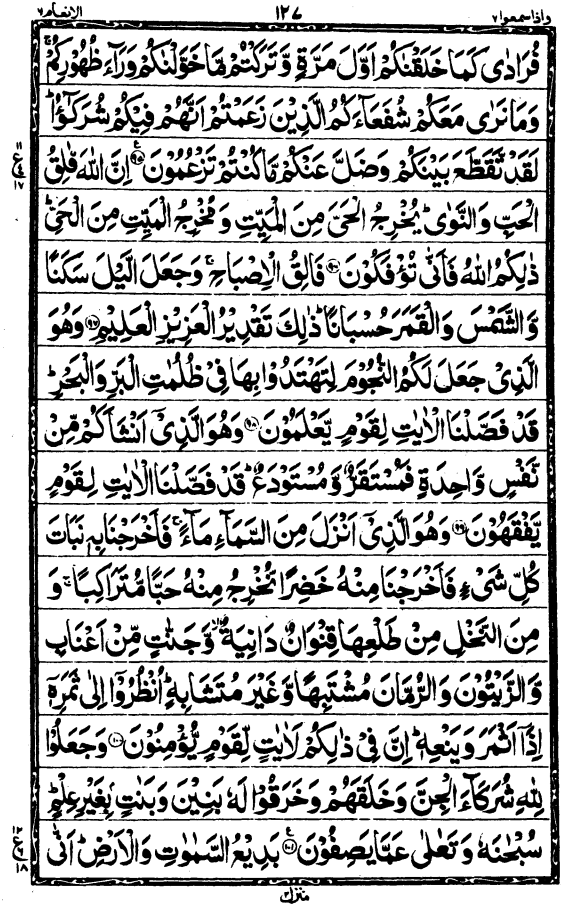 واذا سمعوا ٧ ١٢٧ الانعام ٦
فُرَادٰى كَمَا خَلَقْنٰكُمْ اَوَّلَ مَرَّةٍ وَّتَرَكْتُمْ مَّا خَوَّلْنٰكُمْ وَرَآءَ ظُهُوْرِكُمْ ۚ
وَمَا نَرٰى مَعَكُمْ شُفَعَآءَكُمُ الَّذِيْنَ زَعَمْتُمْ اَنَّهُمْ فِيْكُمْ شُرَكٰٓؤُا ؕ
لَقَدْ تَّقَطَّعَ بَيْنَكُمْ وَضَلَّ عَنْكُمْ مَّا كُنْتُمْ تَزْعُمُوْنَ ﴿۹۵﴾ اِنَّ اللّٰهَ فٰلِقُ
الْحَبِّ وَالنَّوٰى ؕ يُخْرِجُ الْحَيَّ مِنَ الْمَيِّتِ وَمُخْرِجُ الْمَيِّتِ مِنَ الْحَيِّ ؕ
ذٰلِكُمُ اللّٰهُ فَاَنّٰى تُؤْفَكُوْنَ ﴿۹۶﴾ فَالِقُ الْاِصْبَاحِ ۚ وَجَعَلَ الَّيْلَ سَكَنًا
وَّالشَّمْسَ وَالْقَمَرَ حُسْبَانًا ؕ ذٰلِكَ تَقْدِيْرُ الْعَزِيْزِ الْعَلِيْمِ ﴿۹۷﴾ وَهُوَ
الَّذِيْ جَعَلَ لَكُمُ النُّجُوْمَ لِتَهْتَدُوْا بِهَا فِيْ ظُلُمٰتِ الْبَرِّ وَالْبَحْرِ ؕ
قَدْ فَصَّلْنَا الْاٰيٰتِ لِقَوْمٍ يَّعْلَمُوْنَ ﴿۹۸﴾ وَهُوَ الَّذِيْۤ اَنْشَاَكُمْ مِّنْ
نَّفْسٍ وَّاحِدَةٍ فَمُسْتَقَرٌّ وَّمُسْتَوْدَعٌ ؕ قَدْ فَصَّلْنَا الْاٰيٰتِ لِقَوْمٍ
يَّفْقَهُوْنَ ﴿۹۹﴾ وَهُوَ الَّذِيْۤ اَنْزَلَ مِنَ السَّمَآءِ مَآءً ۚ فَاَخْرَجْنَا بِهٖ نَبَاتَ
كُلِّ شَيْءٍ فَاَخْرَجْنَا مِنْهُ خَضِرًا نُّخْرِجُ مِنْهُ حَبًّا مُّتَرَاكِبًا ۚ وَ
مِنَ النَّخْلِ مِنْ طَلْعِهَا قِنْوَانٌ دَانِيَةٌ ۙ وَّجَنّٰتٍ مِّنْ اَعْنَابٍ
وَّالزَّيْتُوْنَ وَالرُّمَّانَ مُشْتَبِهًا وَّغَيْرَ مُتَشَابِهٍ ؕ اُنْظُرُوْۤا اِلٰى ثَمَرِهٖۤ
اِذَاۤ اَثْمَرَ وَيَنْعِهٖ ؕ اِنَّ فِيْ ذٰلِكُمْ لَاٰيٰتٍ لِّقَوْمٍ يُّؤْمِنُوْنَ ﴿۱۰۰﴾ وَجَعَلُوْا
لِلّٰهِ شُرَكَآءَ الْجِنَّ وَخَلَقَهُمْ وَخَرَقُوْا لَهٗ بَنِيْنَ وَبَنٰتٍۭ بِغَيْرِ عِلْمٍ ؕ
سُبْحٰنَهٗ وَتَعٰلٰى عَمَّا يَصِفُوْنَ ﴿۱۰۱﴾ بَدِيْعُ السَّمٰوٰتِ وَالْاَرْضِ ؕ اَنّٰى